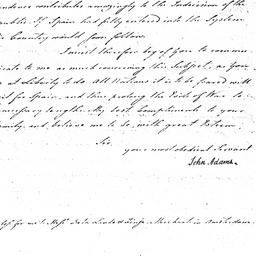 endence contributes amazingly to the Indecision of the
public. If Spain had fully entered into the System
Country would soon follow
I must therefore beg of you to commu
nicate to me as much concerning this Subject, as you
are at Liberty to do. All Nations it is to be feared will
wait for Spain, and thus prolong the Evils of War to
unnecessary lengths. My best Compliments to your
Family, and believe me to be, with great Esteem.
Sir,
your most obedient Servant
John Adams.
for me to Messrs. Merchants in Amsterdam